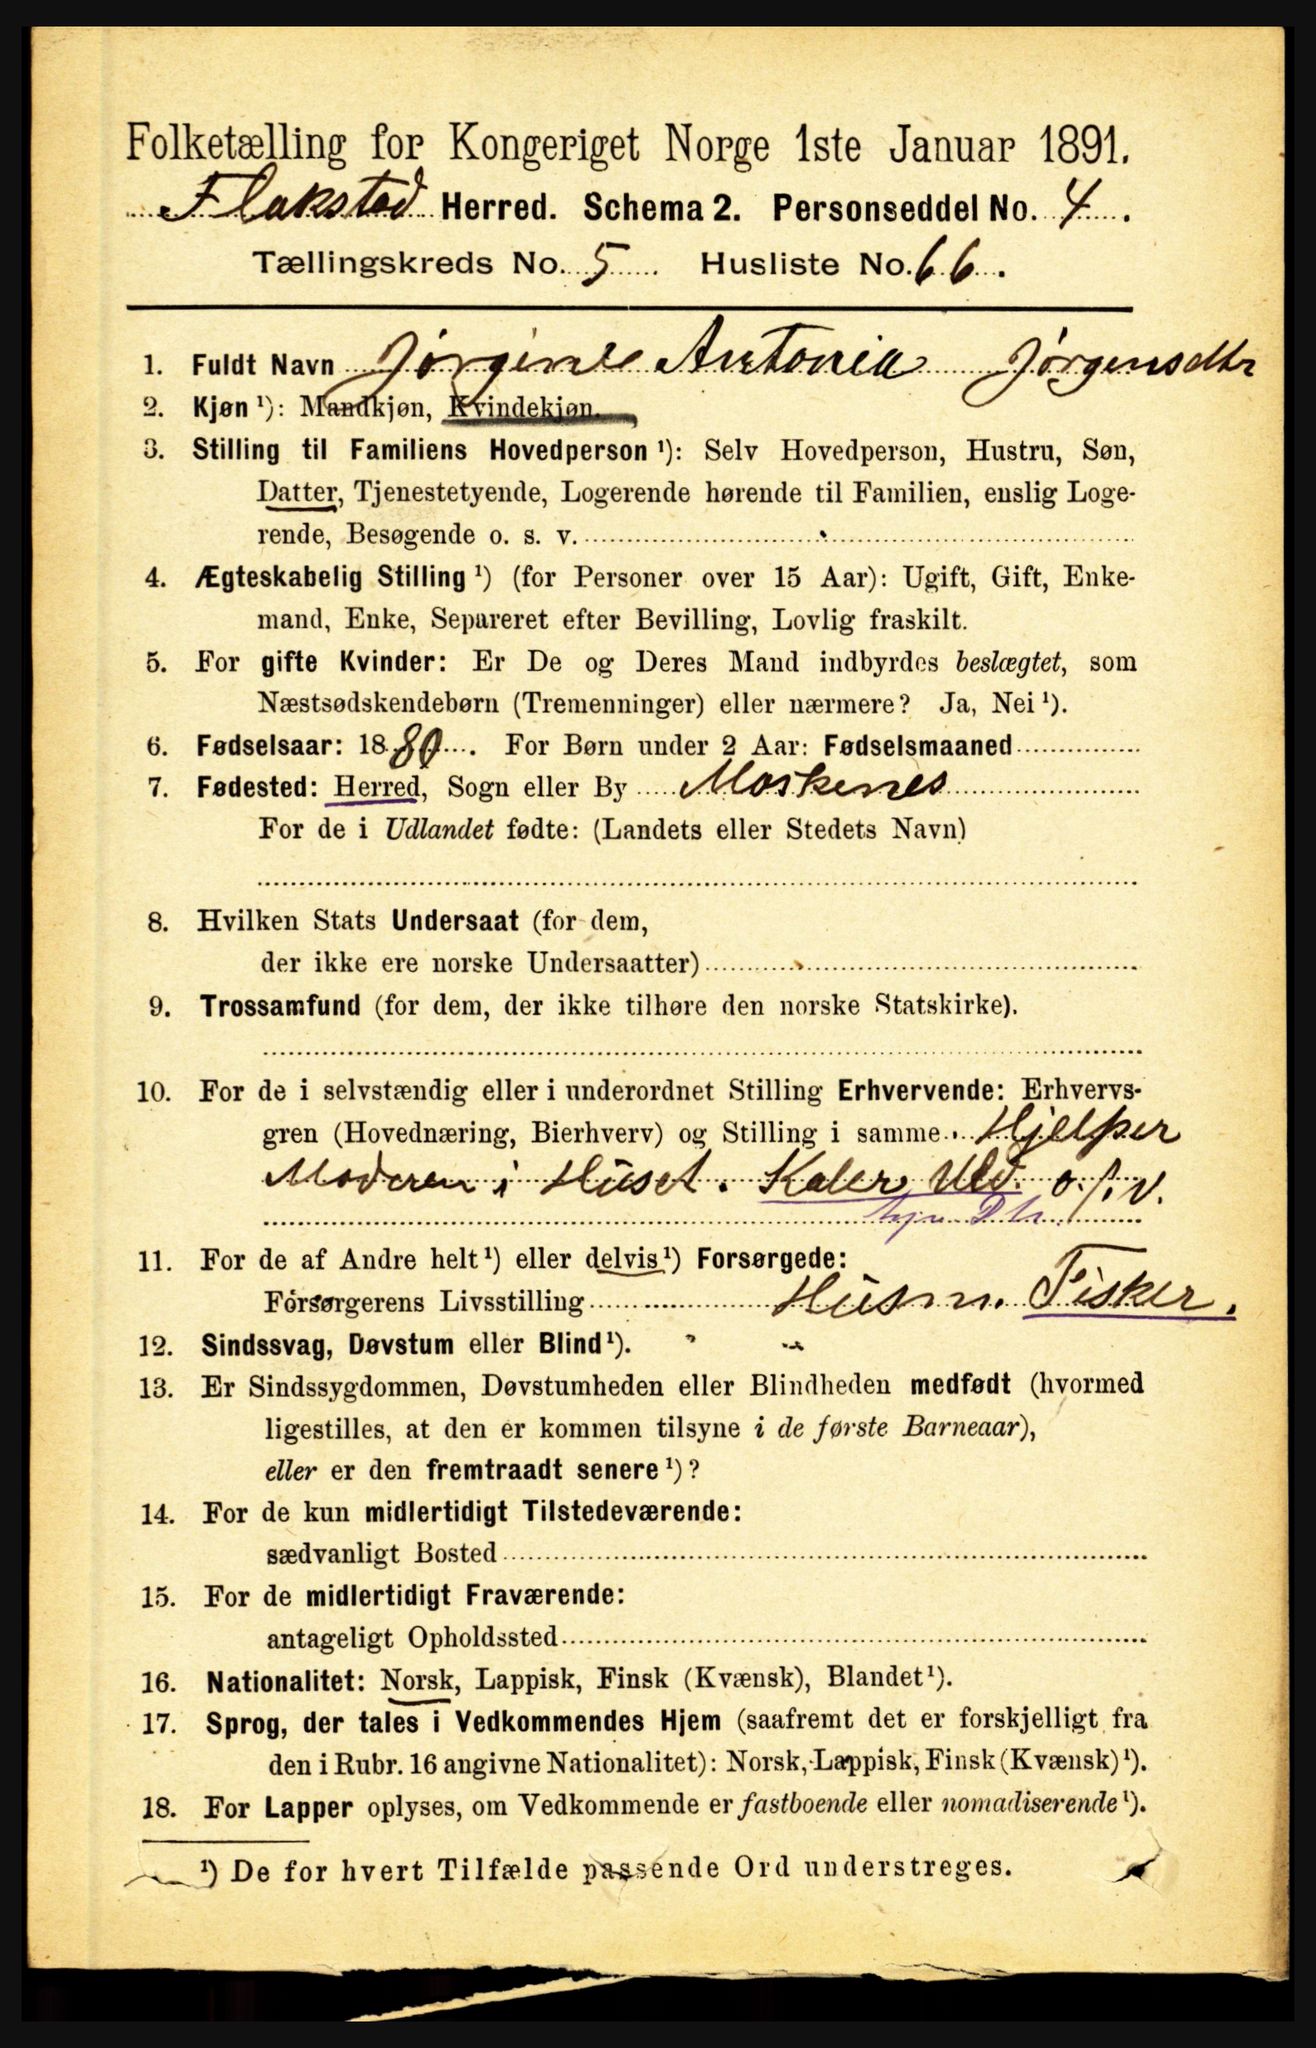 Folketælling for Kongeriget Norge 1ste Januar 1891.
Flakstad Herred. Schema 2. Personseddel No. 4.
Tællingskreds No. 5 Husliste No. 66.
1. Fuldt Navn Jørgine Antonia Jørgensdtr
2. Kjøn ¹): Mandkjøn, Kvindekjøn.
3. Stilling til Familiens Hovedperson ¹): Selv Hovedperson, Hustru, Søn,
Datter, Tjenestetyende, Logerende hørende til Familien, enslig Loge-
rende, Besøgende o. s. v.
4. Ægteskabelig Stilling ¹) (for Personer over 15 Aar): Ugift, Gift, Enke-
mand, Enke, Separeret efter Bevilling, Lovlig fraskilt.
5. For gifte Kvinder: Er De og Deres Mand indbyrdes beslægtet, som
Næstsødskendebørn (Tremenninger) eller nærmere? Ja, Nei ¹).
6. Fødselsaar: 1880. For Børn under 2 Aar: Fødselsmaaned
7. Fødested: Herred, Sogn eller By Moskenes
For de i Udlandet fødte: (Landets eller Stedets Navn)
8. Hvilken Stats Undersaat (for dem,
der ikke ere norske Undersaatter)
9. Trossamfund (for dem, der ikke tilhøre den norske Statskirke).
10. For de i selvstændig eller i underordnet Stilling Erhvervende: Erhvervs-
gren (Hovednæring, Bierhverv) og Stilling i samme. Hjelper
Moderen i Huset. Kaler Uld. o.s.v.
11. For de af Andre helt ¹) eller delvis ¹) Forsørgede:
Forsørgerens Livsstilling Husm. Fisker.
12. Sindssvag, Døvstum eller Blind ¹).
13. Er Sindssygdommen, Døvstumheden eller Blindheden medfødt (hvormed
ligestilles, at den er kommen tilsyne i de første Barneaar),
eller er den fremtraadt senere ¹)?
14. For de kun midlertidigt Tilstedeværende:
sædvanligt Bosted
15. For de midlertidigt Fraværende:
antageligt Opholdssted
16. Nationalitet: Norsk, Lappisk, Finsk (Kvænsk), Blandet ¹).
17. Sprog, der tales i Vedkommendes Hjem (saafremt det er forskjelligt fra
den i Rubr. 16 angivne Nationalitet): Norsk, Lappisk, Finsk (Kvænsk) ¹).
18. For Lapper oplyses, om Vedkommende er fastboende eller nomadiserende ¹).
¹) De for hvert Tilfælde passende Ord understreges.